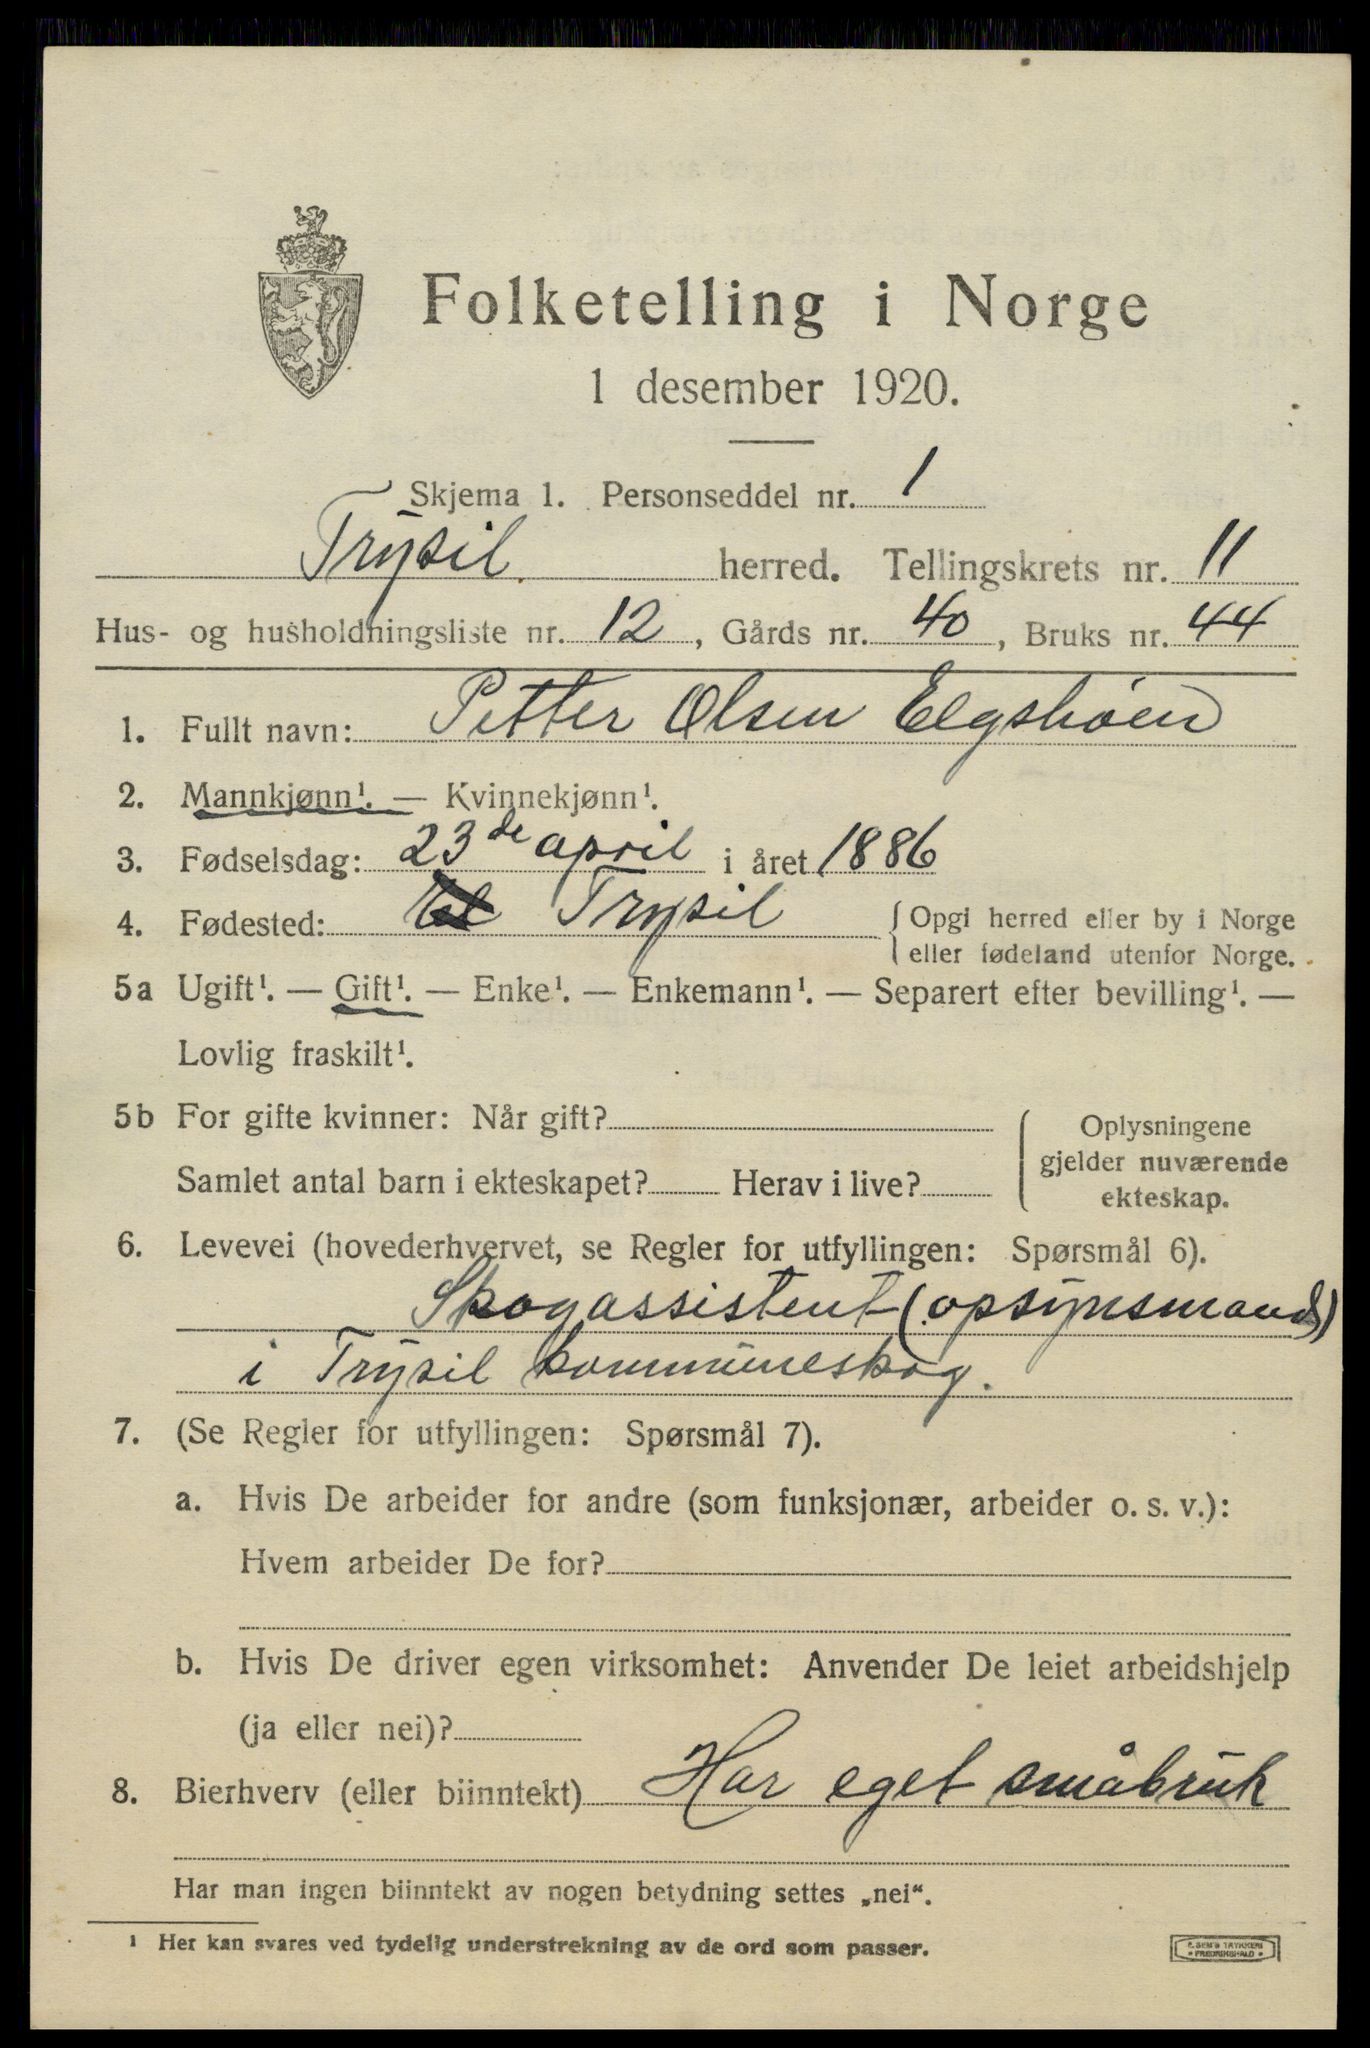 Folketelling i Norge
1 desember 1920.
Skjema 1. Personseddel nr. 1
Trysil herred. Tellingskrets nr. 11
Hus- og husholdningsliste nr. 12, Gårds nr. 40, Bruks nr. 44
1. Fullt navn: Petter Olsen Elgshøen
2. Mannkjønn¹. — Kvinnekjønn¹.
3. Fødselsdag: 23de april i året 1886
4. Fødested: Trysil {Opgi herred eller by i Norge
eller fødeland utenfor Norge.
5a Ugift¹. — Gift¹. — Enke¹. — Enkemann¹. — Separert efter bevilling¹. —
Lovlig fraskilt¹.
5b For gifte kvinner: Når gift?
Samlet antal barn i ekteskapet? Herav i live?
Oplysningene
gjelder nuværende
ekteskap.
6. Levevei (hovederhvervet, se Regler for utfyllingen: Spørsmål 6).
Skogassistent (opsynsmand)
i Trysil kommuneskog.
7. (Se Regler for utfyllingen: Spørsmål 7).
a. Hvis De arbeider for andre (som funksjonær, arbeider o. s. v.):
Hvem arbeider De for?
b. Hvis De driver egen virksomhet: Anvender De leiet arbeidshjelp
(ja eller nei)?
8. Bierhverv (eller biinntekt) Har eget småbruk
Har man ingen biinntekt av nogen betydning settes „nei“.
¹ Her kan svares ved tydelig understrekning av de ord som passer.
E. SEM'S TRYKKERI
FREDRIKSHALD